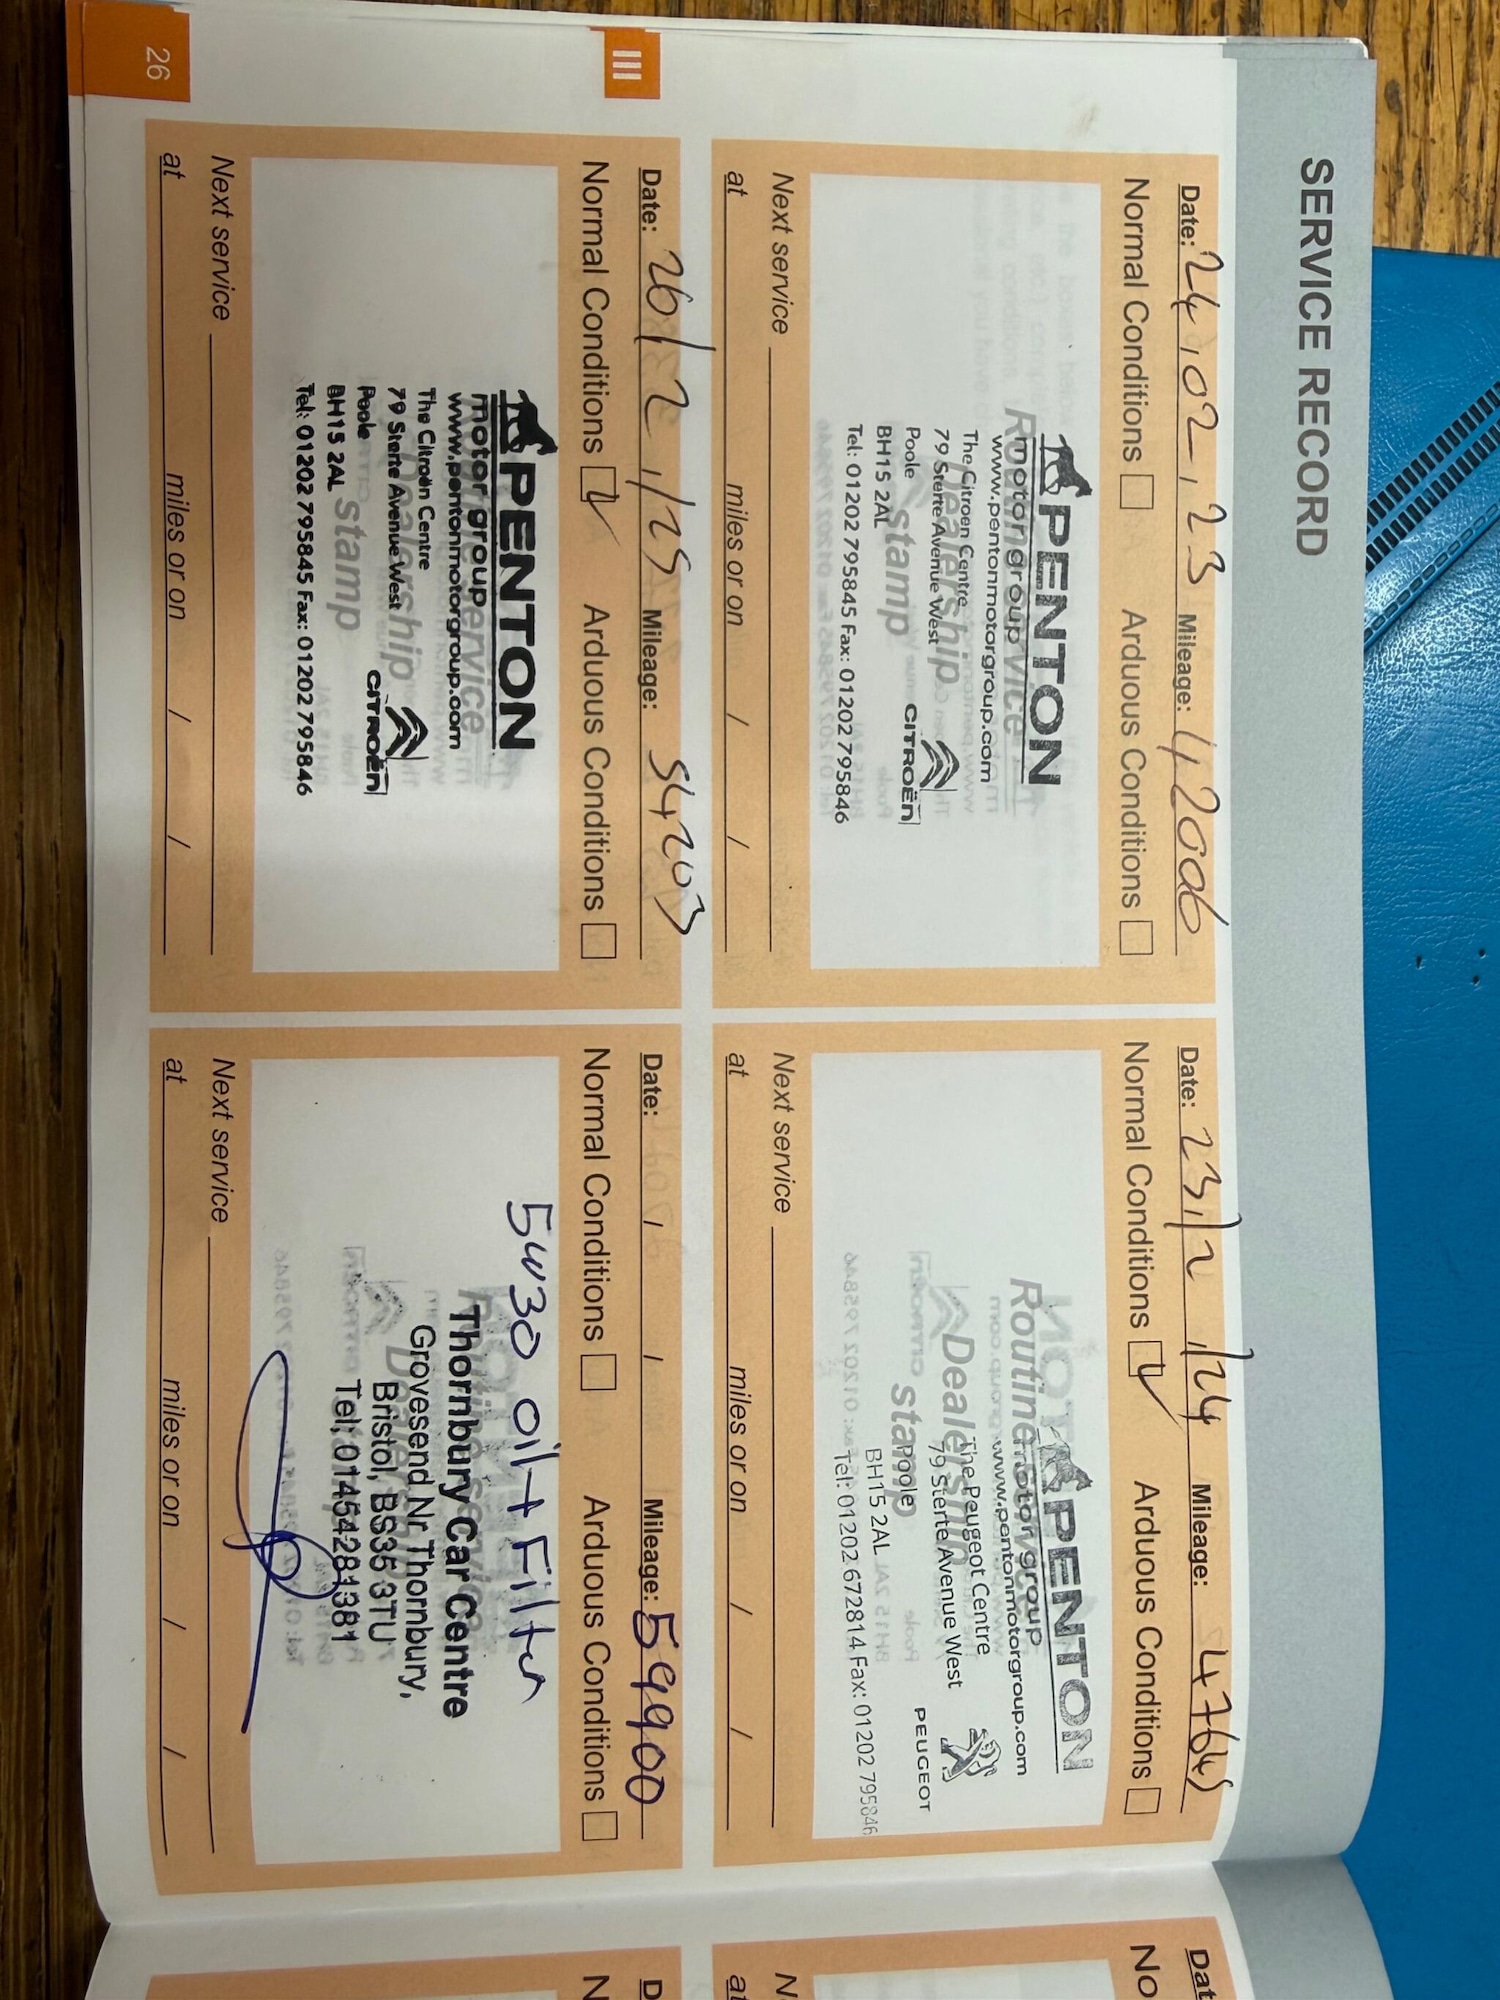 SERVICE RECORD
Date: 24, 02, 23 Mileage: 42006
Normal Conditions Arduous Conditions
PENTON
motor group
www.pentonmotorgroup.com
The Citroen Centre
79 Sterte Avenue West
Poole
BH15 2AL
CITROËN
Tel: 01202 795845 Fax: 01202 795846
Dealership
stamp
Next service
at miles or on / /
Date: 23/2/24 Mileage: 47645
Normal Conditions Arduous Conditions
PENTON
Routine
motor group
www.pentonmotorgroup.com
The Peugeot Centre
79 Sterte Avenue West
Poole
BH15 2AL
PEUGEOT
Tel: 01202 672814 Fax: 01202 795846
Dealership
stamp
Next service
at miles or on / /
III
Date: 26/2/25 Mileage: 54203
Normal Conditions Arduous Conditions
PENTON
motor group
service
www.pentonmotorgroup.com
The Citroën Centre
79 Sterte Avenue West
Poole
BH15 2AL
CITROËN
Tel: 01202 795845 Fax: 01202 795846
Dealership
stamp
Next service
at miles or on / /
Date: / / Mileage: 59900
Normal Conditions Arduous Conditions
5W30 Oil + Filter
Thornbury Car Centre
Grovesend Nr Thornbury,
Bristol, BS35 3TU
Tel; 01454281381
Next service
at miles or on / /
26
Dat
No
N
at
D
N